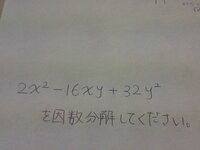 2x² - 16xy + 32y²
を因数分解してください。